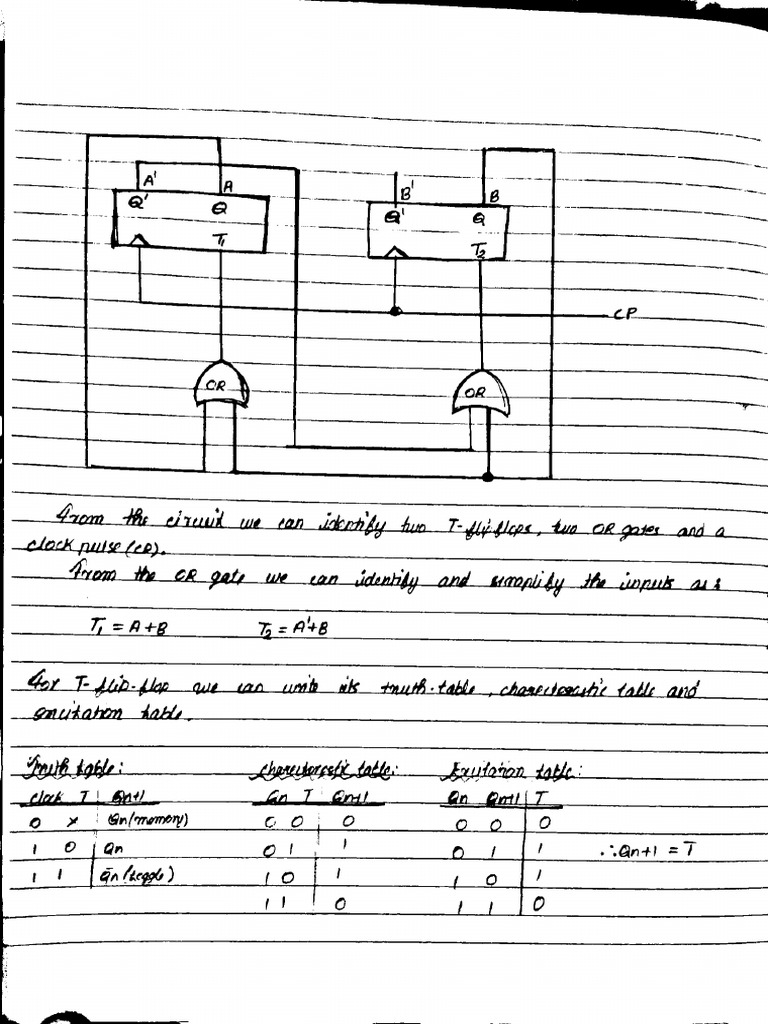 A' A B' B
Q' Q Q' Q
T1 T2
CP
OR OR
From the circuit we can identify two T-flipflops, two OR gates and a
clock pulse(CP).
From the OR gate we can identify and simplify the inputs as :
T1 = A+B T2 = A'+B
For T-flip-flop we can write its truth-table, charectorestic table and
excitation table.
Truth table: charectorestic table: Exxitation table:
clock T Qn+1 Qn T Qn+1 Qn Qn+1 T
0 x Qn(memory) 0 0 0 0 0 0
1 0 Qn 0 1 1 0 1 1 ∴Qn+1 = T
1 1 Q̄n(toggle) 1 0 1 1 0 1
1 1 0 1 1 0